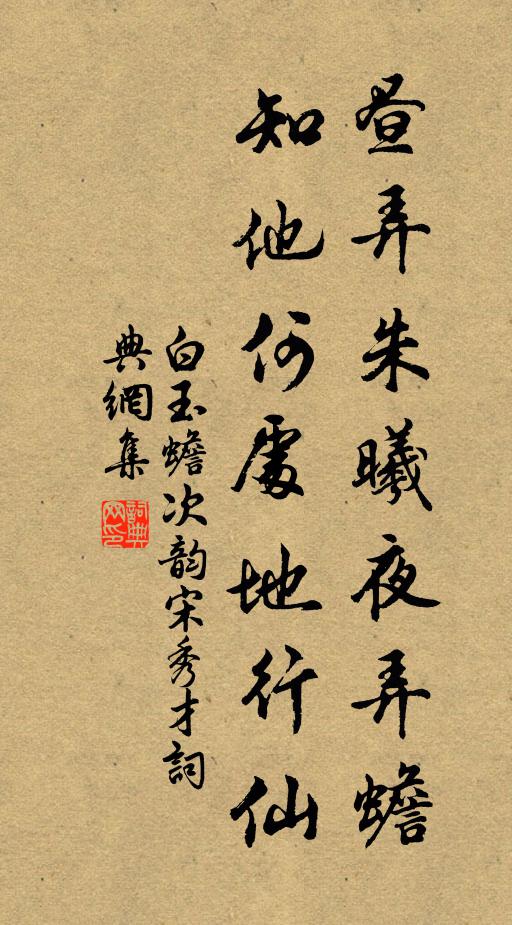 昼弄朱曦夜弄蟾
知他何處地行仙
白玉蟾次韵宋秀才詞
典網集
詞典網印